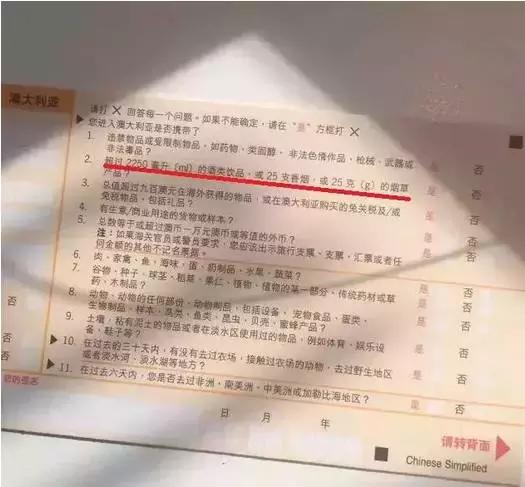 澳大利亚
请打 X 回答每一个问题。如果不能确定，请在 "是" 方框打 X
▶ 您进入澳大利亚是否携带了
1. 违禁物品或受限制物品，如药物、类固醇、非法色情作品、枪械、武器或 是 否
非法毒品？
2. 超过 2250 毫升（ml）的酒类饮品，或 25 支香烟，或 25 克（g）的烟草 是 否
产品？
3. 总值超过九百澳元在海外获得的物品，或在澳大利亚购买的免关税及/或 是 否
免税物品，包括礼品？
4. 有生意/商业用途的货物或样本？ 是 否
5. 总数等于或超过澳币一万元澳币或等值的外币？ 是 否
注：如果海关官员或警员要求，您应该出示旅行支票、支票、汇票或者任
何金额的其他不记名票据。
6. 肉、家禽、鱼、海味、蛋、奶制品、水果、蔬菜？ 是 否
7. 谷物、种子、球茎、稻草、果仁、植物、植物的某一部分、传统药材或草 是 否
药、木制品？
8. 动物、动物的任何部份、动物制品，包括设备、宠物食品、蛋类、 是 否
生物制品、样本、鸟类、鱼类、昆虫、贝壳、蜜蜂产品？
9. 土壤，粘有泥土的物品或者在淡水区使用过的物品，例如体育、娱乐设 是 否
备、鞋子等？
▶ 10. 在过去的三十天内，有没有去过农场，接触过农场的动物，去过野生地区 是 否
或者淡水河、淡水湖等地方？
▶ 11. 在过去六天内，您是否去过非洲、南美洲、中美洲或加勒比海地区？ 是 否
否
否
您的签名
日 月 年
请转背面
Chinese Simplified